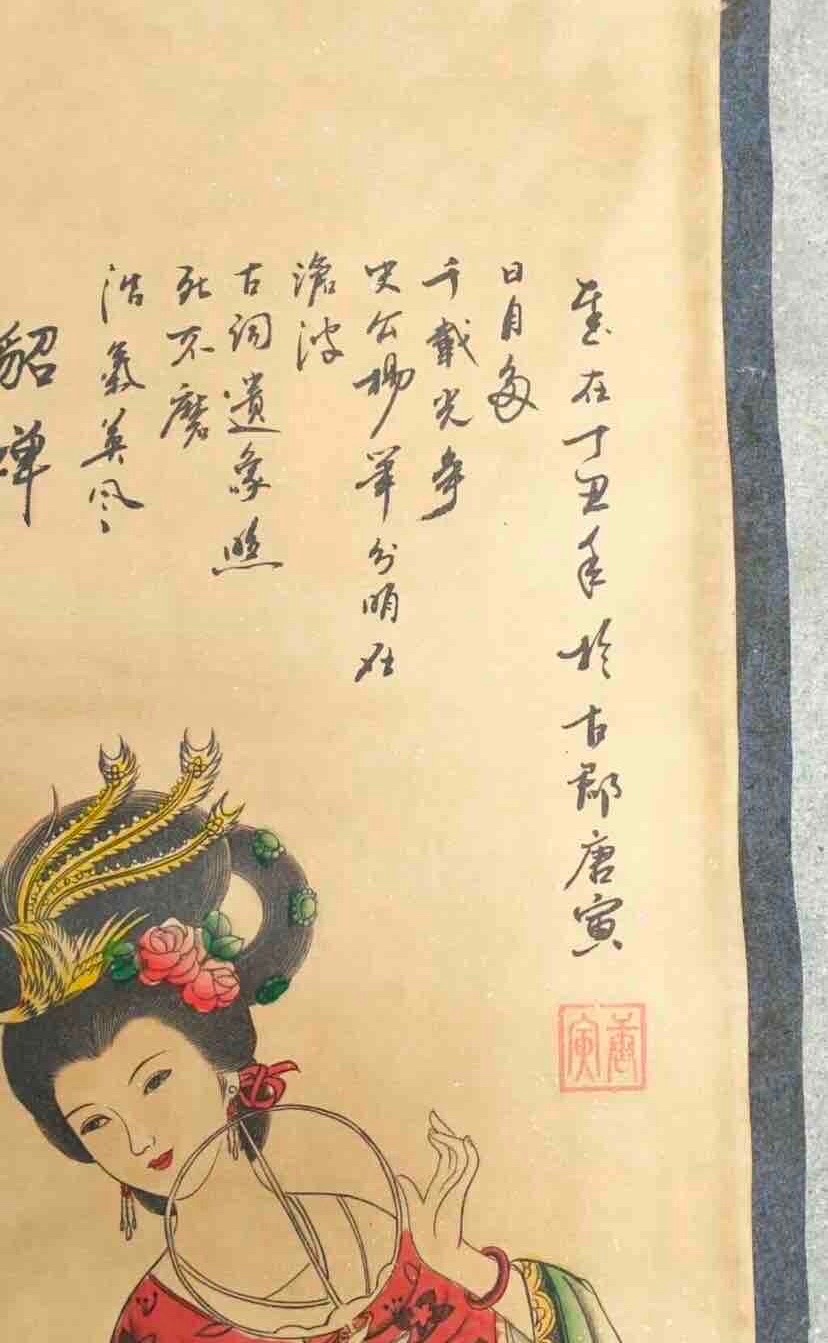 貂蟬
浩氣英風
死不磨
古詞遺象照
滄波
史公楊筆分明在
千載光爭
日自多
歲在丁丑年於古郡唐寅
唐寅